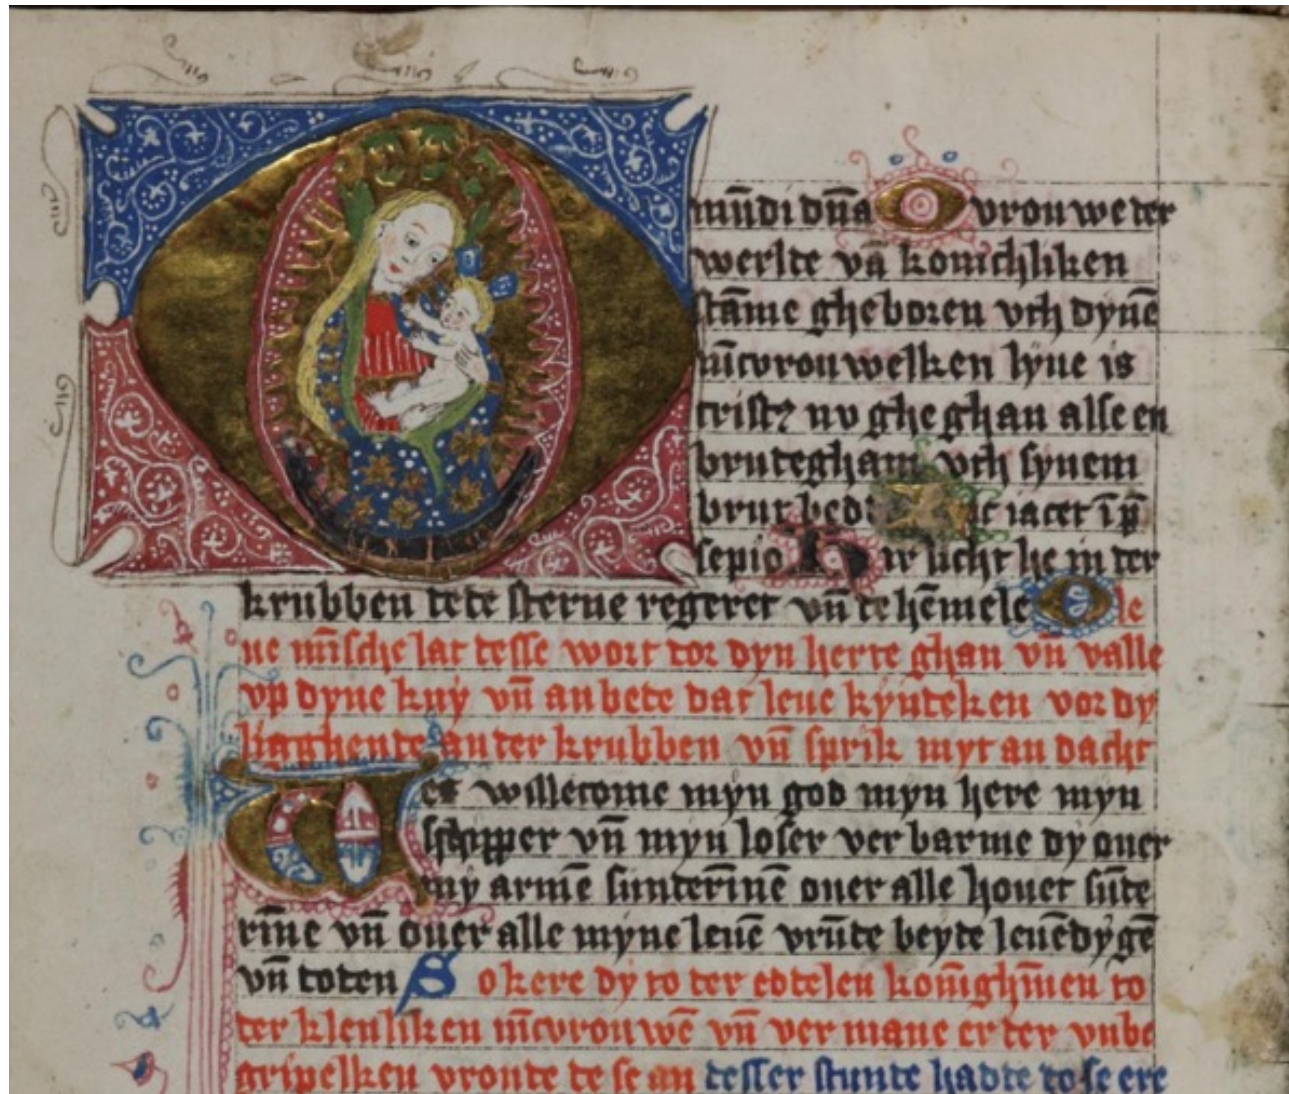 O mūdi dn̄a O vrouwe der
werlde vā konichliken
stāme gheboren vth dynē
iūcvrouwelken lyue is
cristꝫ nv ghe ghan alse en
brutegham vth synem
brut bed iacet ī p̄
sepio Hir licht he in der
krubben de de sterne regeret vn̄ de hēmele O le
ue mīsche lat desse wort dor dyn herte ghan vn̄ valle
vp dyne kny vn̄ anbede dat leue kyndeken vor dy
ligghende an der krubben vn̄ sprik myt an dacht
Wes willecome myn god myn here myn
schipper vn̄ myn loser ver barme dy ouer
my armē sunderīnē ouer alle houet sūde
rīne vn̄ ouer alle myne leuē vrūde beyde leuēdygē
vn̄ doden So kere dy to der eddelen konīghīnen to
der klenliken iūcvrouwē vn̄ ver mane er der vnbe
gripelken vroude de se an desser stunde hadde do se ere